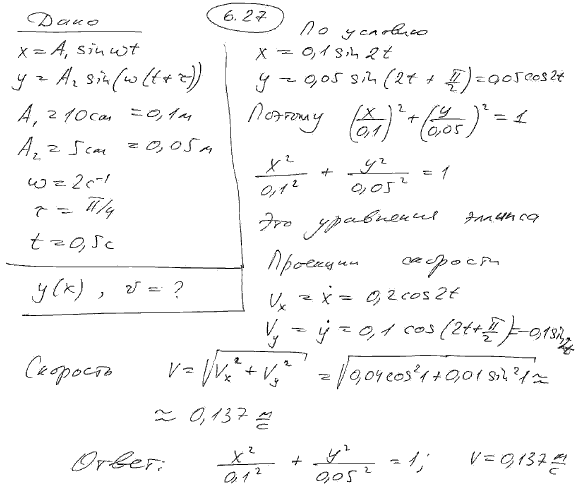 6.27
Дано
x = A₁ sin ωt
y = A₂ sin(ω(t + τ))
A₁ = 10 см = 0,1 м
A₂ = 5 см = 0,05 м
ω = 2 с⁻¹
τ = π/4
t = 0,5 с
y(x), v = ?
По условию
x = 0,1 sin 2t
y = 0,05 sin (2t + π/2) = 0,05 cos 2t
Поэтому (x/0,1)² + (y/0,05)² = 1
x²/0,1² + y²/0,05² = 1
Это уравнения эллипса
Проекции скорости
Vₓ = ẋ = 0,2 cos 2t
V_y = ẏ = 0,1 cos (2t + π/2) = -0,1 sin 2t
Скорость V = √(Vₓ² + V_y²) = √(0,04 cos² 1 + 0,01 sin² 1) ≈
≈ 0,137 м/с
Ответ: x²/0,1² + y²/0,05² = 1; V = 0,137 м/с